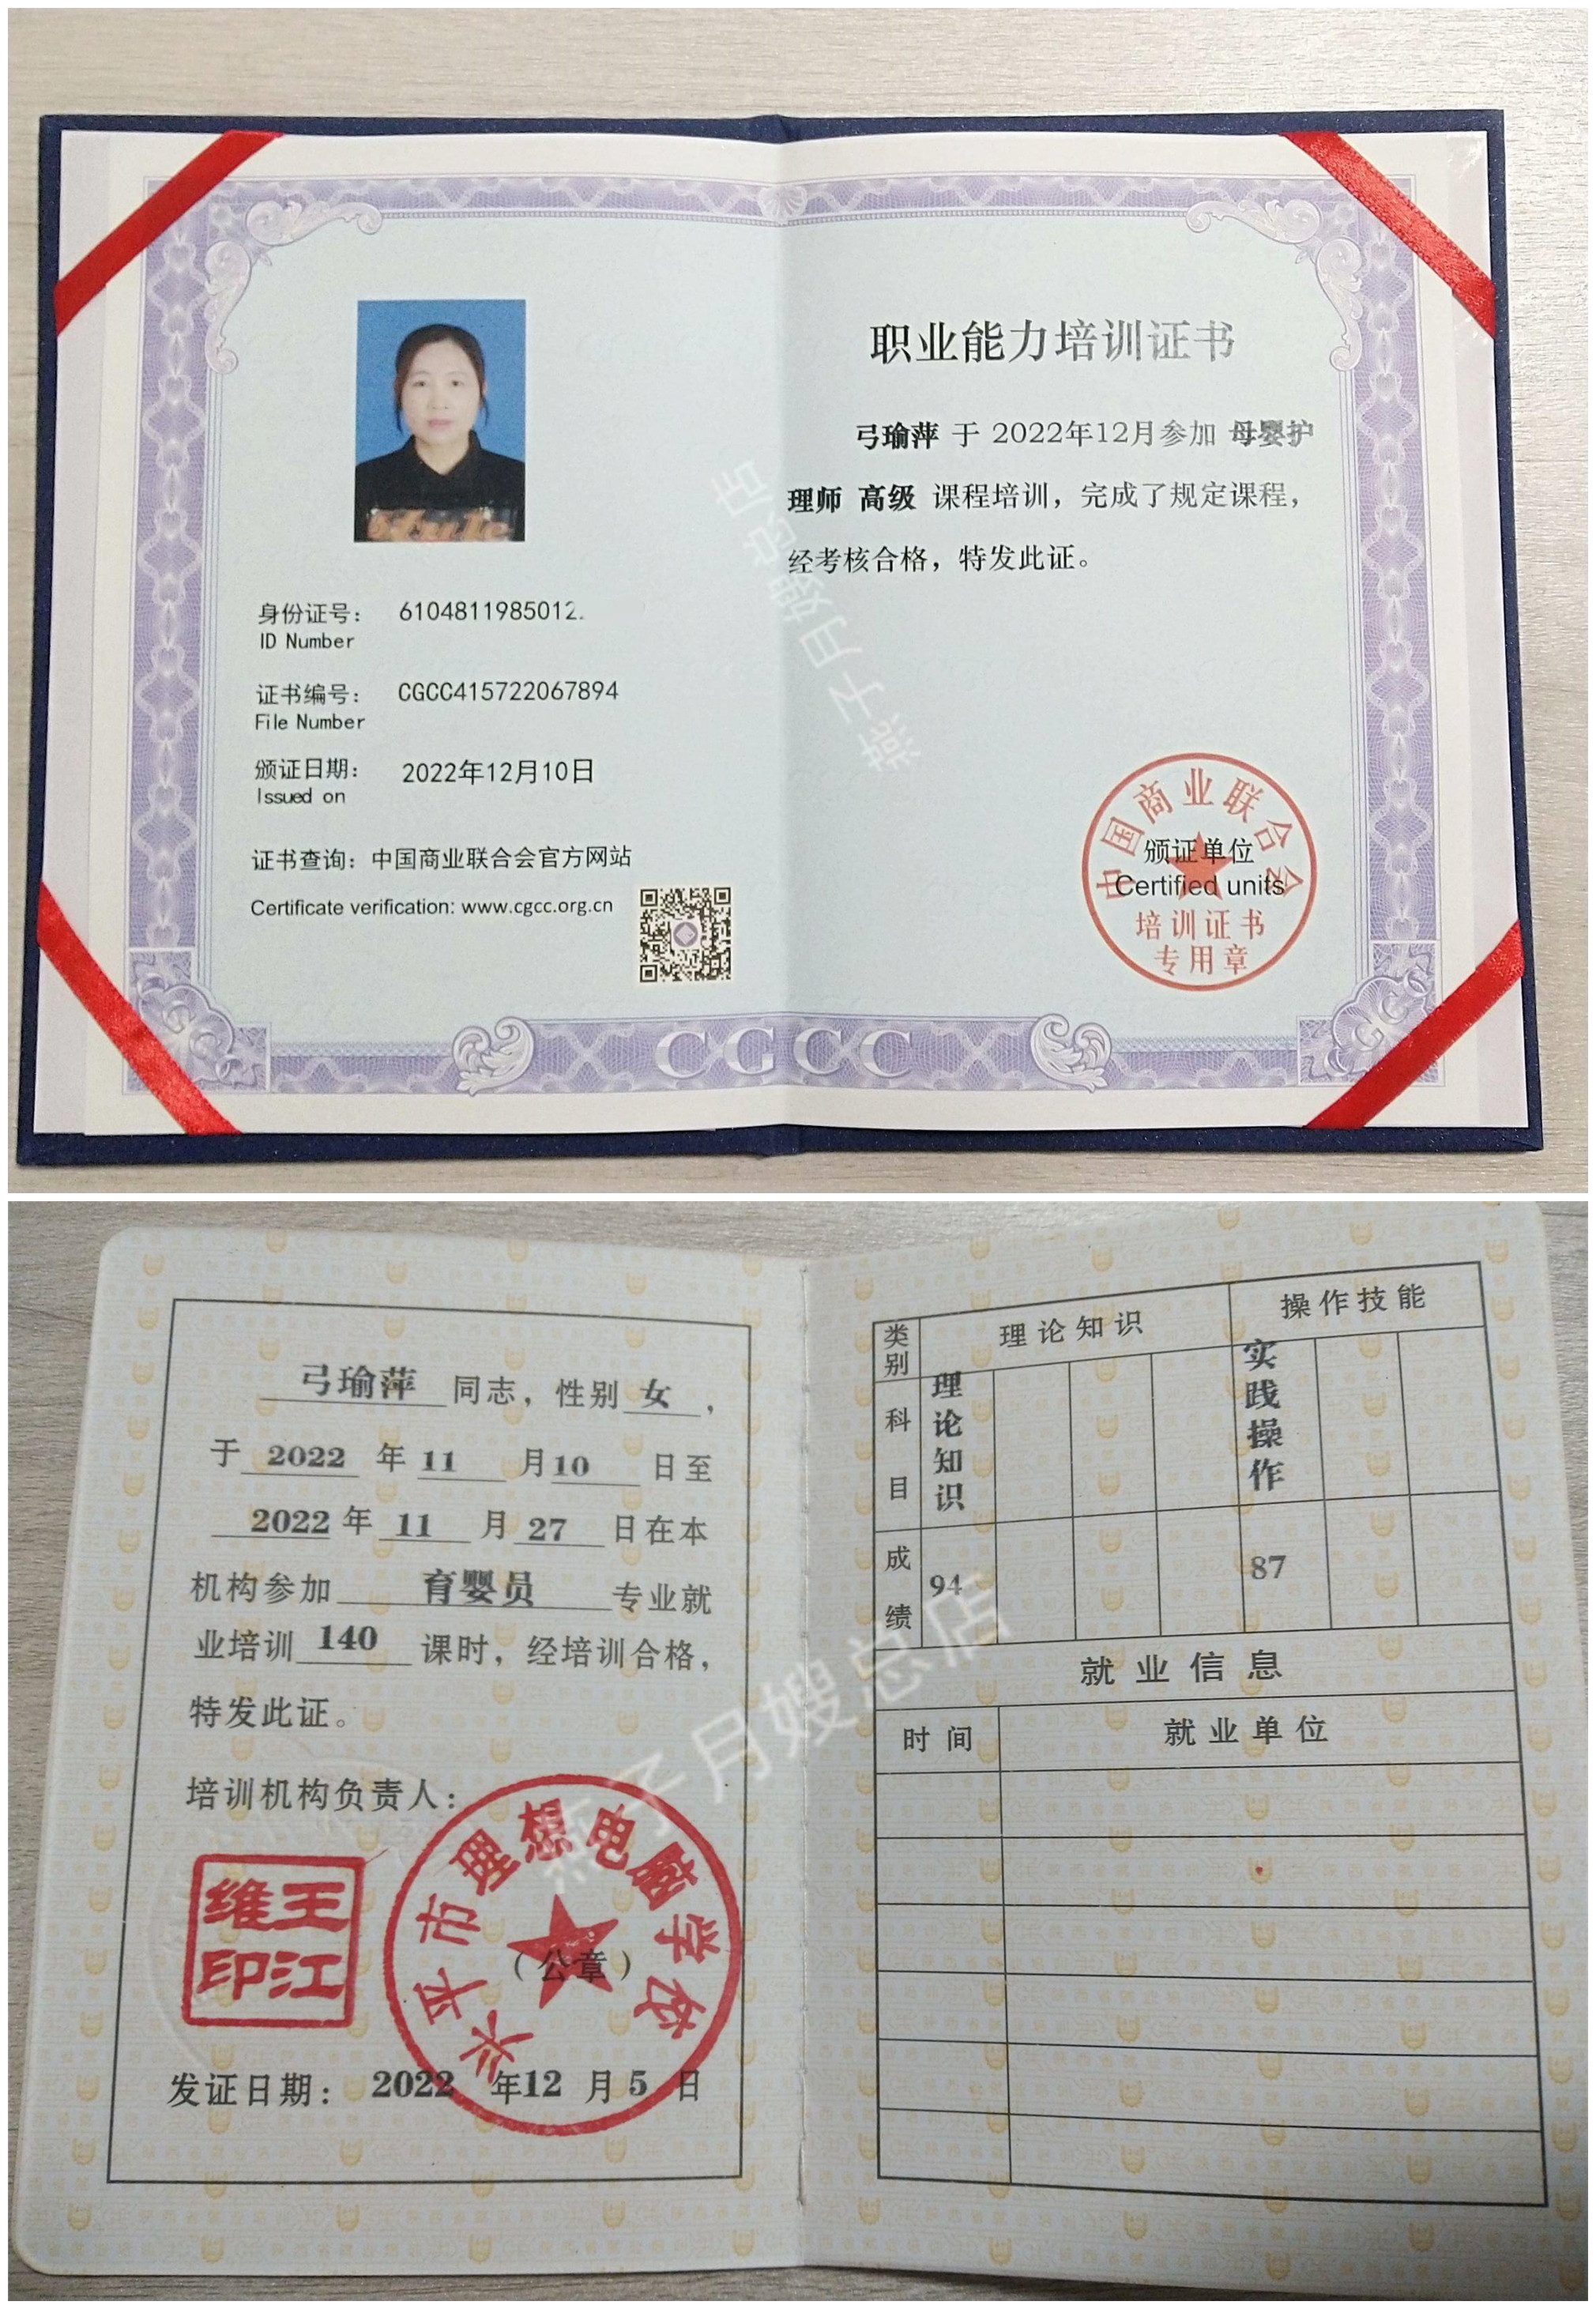 职业能力培训证书
弓瑜萍 于 2022年12月参加 母婴护
理师 高级 课程培训，完成了规定课程，
经考核合格，特发此证。
身份证号： 6104811985012
ID Number
证书编号： CGCC415722067894
File Number
颁证日期： 2022年12月10日
Issued on
证书查询：中国商业联合会官方网站
Certificate verification: www.cgcc.org.cn
中国商业联合会
颁证单位
Certified units
培训证书
专用章
CGCC
燕子月嫂总店
弓瑜萍 同志，性别 女 ，
于 2022 年 11 月 10 日至
2022 年 11 月 27 日在本
机构参加 育婴员 专业就
业培训 140 课时，经培训合格，
特发此证。
培训机构负责人：
王维江印
兴平市理想电脑学校
（公章）
发证日期： 2022 年 12 月 5 日
类别 理论知识 操作技能
科目 理论知识 实践操作
成绩 94 87
就业信息
时间 就业单位
燕子月嫂总店